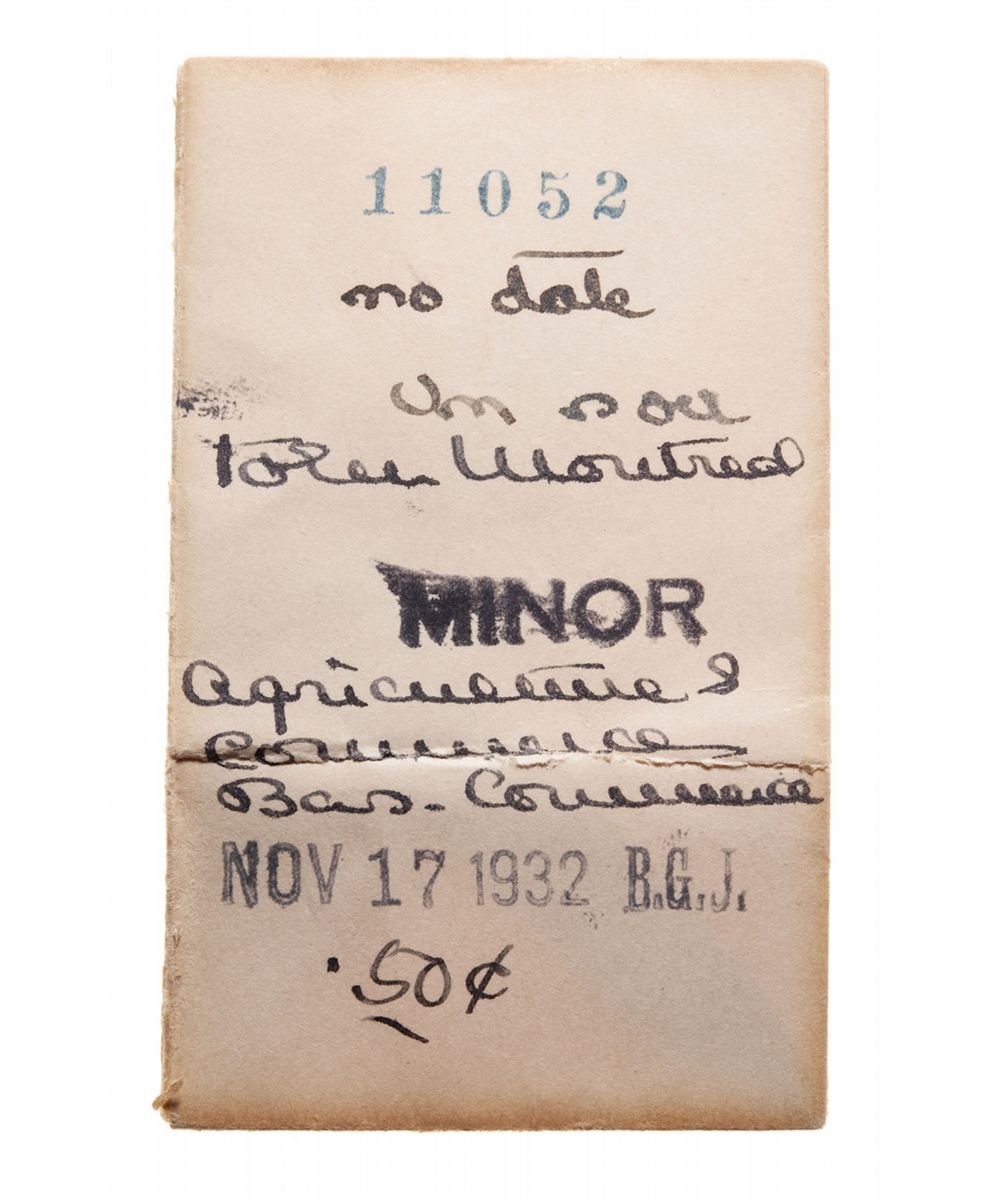 11052
no date
Un sou
Token Montreal
MINOR
Agriculture &
Commerce
Bas-Commerce
NOV 17 1932 B.G.J.
.50¢